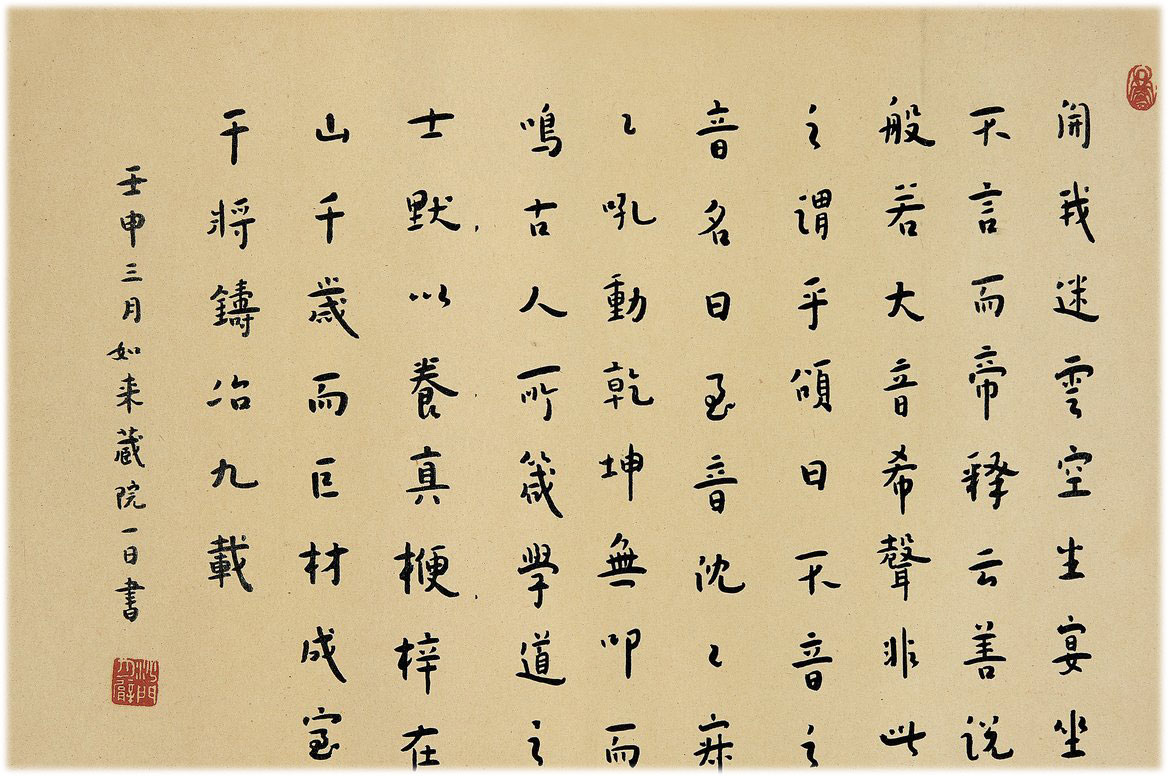 開我迷雲空生宴坐
不言而帝釋云善說
般若大音希聲非此
之謂乎頌曰不音之
音名曰至音沈〻寂
〻吼動乾坤無叩而
鳴古人所箴學道之
士默以養真楩梓在
山千歲而巨材成室
干將鑄冶九載
壬申三月如来藏院一日書